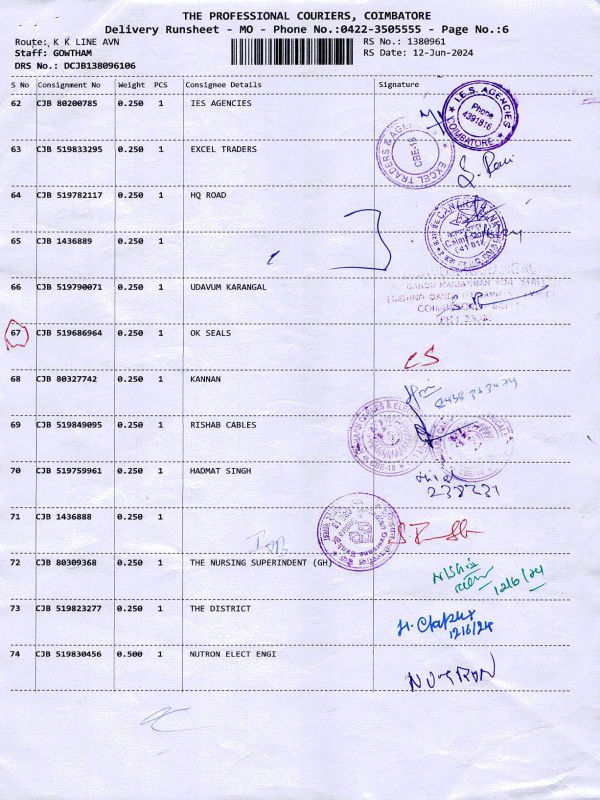 THE PROFESSIONAL COURIERS, COIMBATORE
Delivery Runsheet - MO - Phone No.:0422-3505555 - Page No.:6
Route: K K LINE AVN RS No.: 1380961
Staff: GOWTHAM RS Date: 12-Jun-2024
DRS No.: DCJB138096106
S No Consignment No Weight PCS Consignee Details Signature
62 CJB 80200785 0.250 1 IES AGENCIES
I.E.S. AGENCIES
Phone
4391816
COIMBATORE
63 CJB 519833295 0.250 1 EXCEL TRADERS
EXCEL TRADERS & AGE
CBE-18
64 CJB 519782117 0.250 1 HQ ROAD
CANARA BANK
65 CJB 1436889 0.250 1
66 CJB 519790071 0.250 1 UDAVUM KARANGAL
67 CJB 519686964 0.250 1 OK SEALS
CS
68 CJB 80327742 0.250 1 KANNAN
69 CJB 519849095 0.250 1 RISHAB CABLES
CBE-18
70 CJB 519759961 0.250 1 HADMAT SINGH
71 CJB 1436888 0.250 1
72 CJB 80309368 0.250 1 THE NURSING SUPERINDENT (GH)
12/6/24
73 CJB 519823277 0.250 1 THE DISTRICT
12/6/24
74 CJB 519830456 0.500 1 NUTRON ELECT ENGI